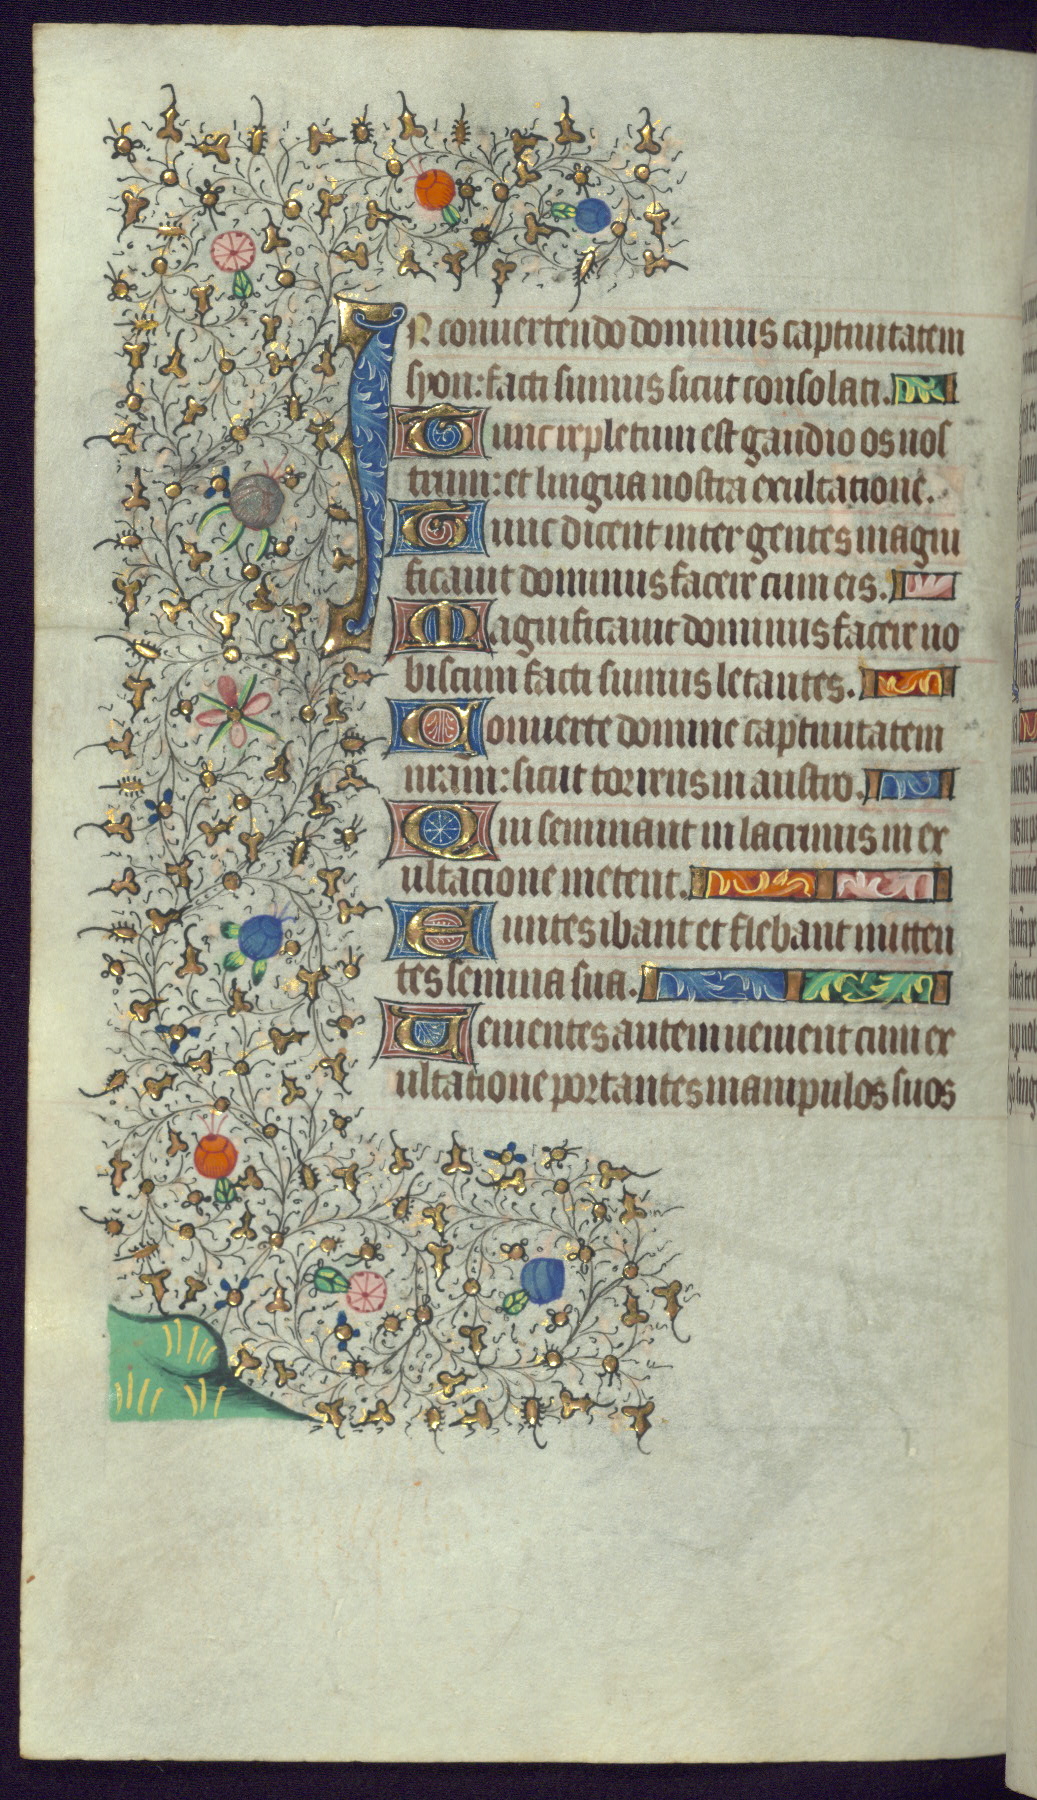 In conuertendo dominus captiuitatem
syon: facti sumus sicut consolati.
Tunc repletum est gaudio os nos
trum: et lingua nostra exultatione.
Tunc dicent inter gentes magni
ficauit dominus facere cum eis.
Magnificauit dominus facere no
biscum facti sumus letantes.
Conuerte domine captiuitatem
nram: sicut torrens in austro.
Qui seminant in lacrimis in ex
ultacione metent.
Euntes ibant et flebant mitten
tes semina sua.
Uenientes autem uenient cum ex
ultatione portantes manipulos suos